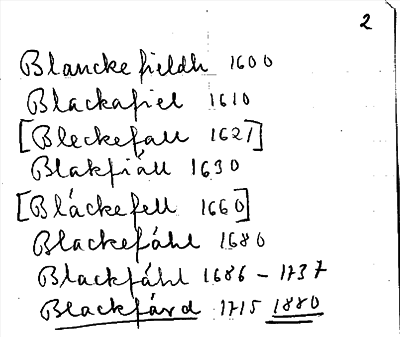 2
Blancke fieldh 1600
Blackafiel 1610
[Bleckefall 1621]
Blakfiáll 1630
[Bláckefell 1660]
Blackefáhl 1680
Blackfáhl 1686 - 1737
Blackfárd 1715 1880